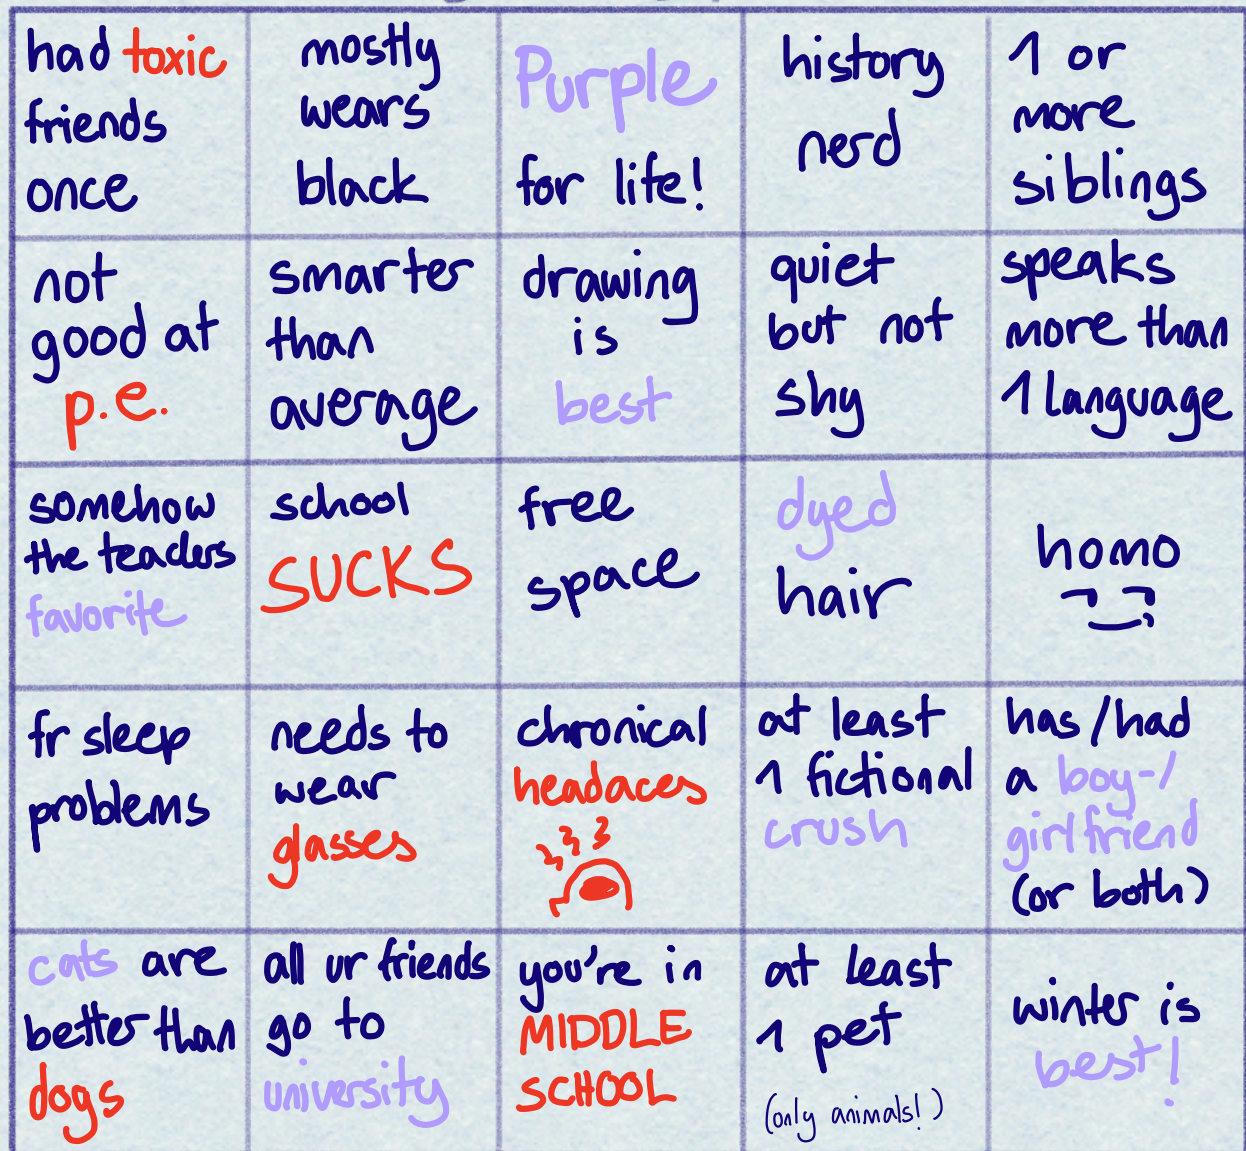 had toxic
friends
once
mostly
wears
black
Purple
for life!
history
nerd
1 or
more
siblings
not
good at
p.e.
smarter
than
average
drawing
is
best
quiet
but not
shy
speaks
more than
1 language
somehow
the teachers
favorite
school
SUCKS
free
space
dyed
hair
homo
fr sleep
problems
needs to
wear
glasses
chronical
headaces
at least
1 fictional
crush
has/had
a boy-/
girlfriend
(or both)
cats are
better than
dogs
all ur friends
go to
university
you're in
MIDDLE
SCHOOL
at least
1 pet
(only animals!)
winter is
best!